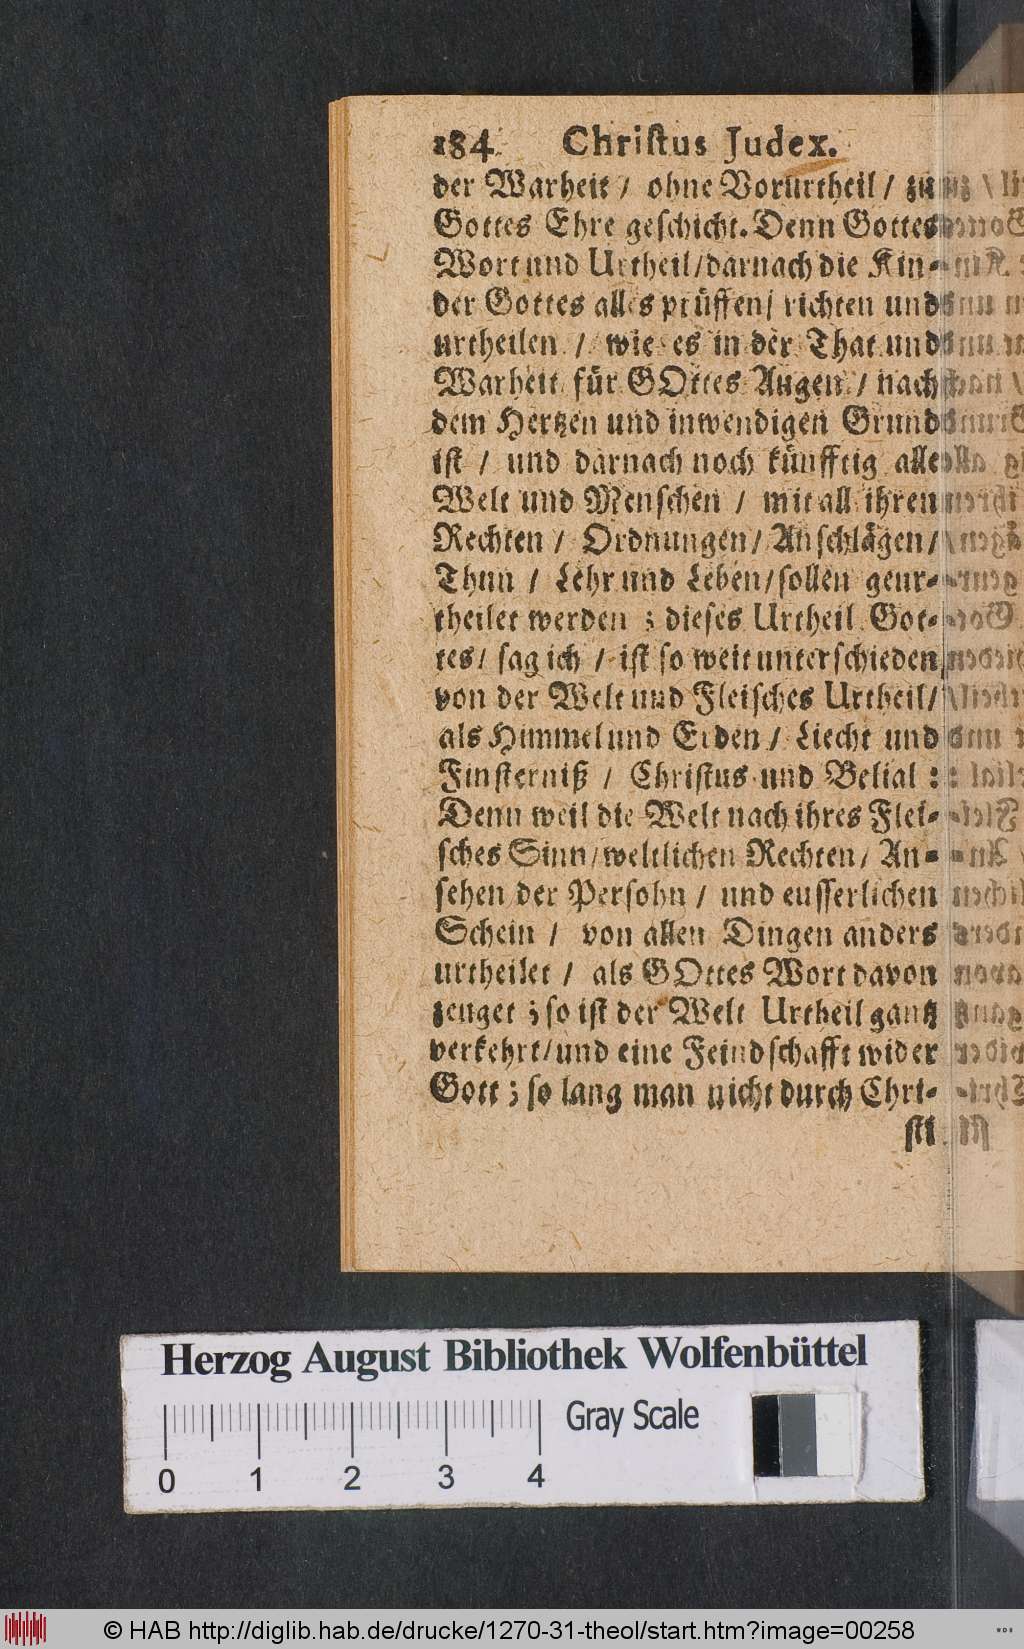 184 Christus Judex.
der Warheit / ohne Vorurtheil / zu
Gottes Ehre geschicht. Denn Gottes
Wort und Urtheil / darnach die Kin-
der Gottes alles prüffen / richten und
urtheilen / wie es in der That und
Warheit für GOttes Augen / nach
dem Hertzen und inwendigen Grund
ist / und darnach noch künfftig alle
Welt und Menschen / mit all ihren
Rechten / Ordnungen / Anschlägen /
Thun / Lehr und Leben / sollen geur-
theilet werden ; dieses Urtheil Got-
tes / sag ich / ist so weit unterschieden
von der Welt und Fleisches Urtheil /
als Himmel und Erden / Liecht und
Finsterniß / Christus und Belial :
Denn weil die Welt nach ihres Flei-
sches Sinn / weltlichen Rechten / An-
sehen der Persohn / und eusserlichen
Schein / von allen Dingen anders
urtheilet / als GOttes Wort davon
zeuget ; so ist der Welt Urtheil gantz
verkehrt / und eine Feindschafft wider
Gott ; so lang man nicht durch Chri-
sti
Herzog August Bibliothek Wolfenbüttel
Gray Scale
0 1 2 3 4
© HAB http://diglib.hab.de/drucke/1270-31-theol/start.htm?image=00258